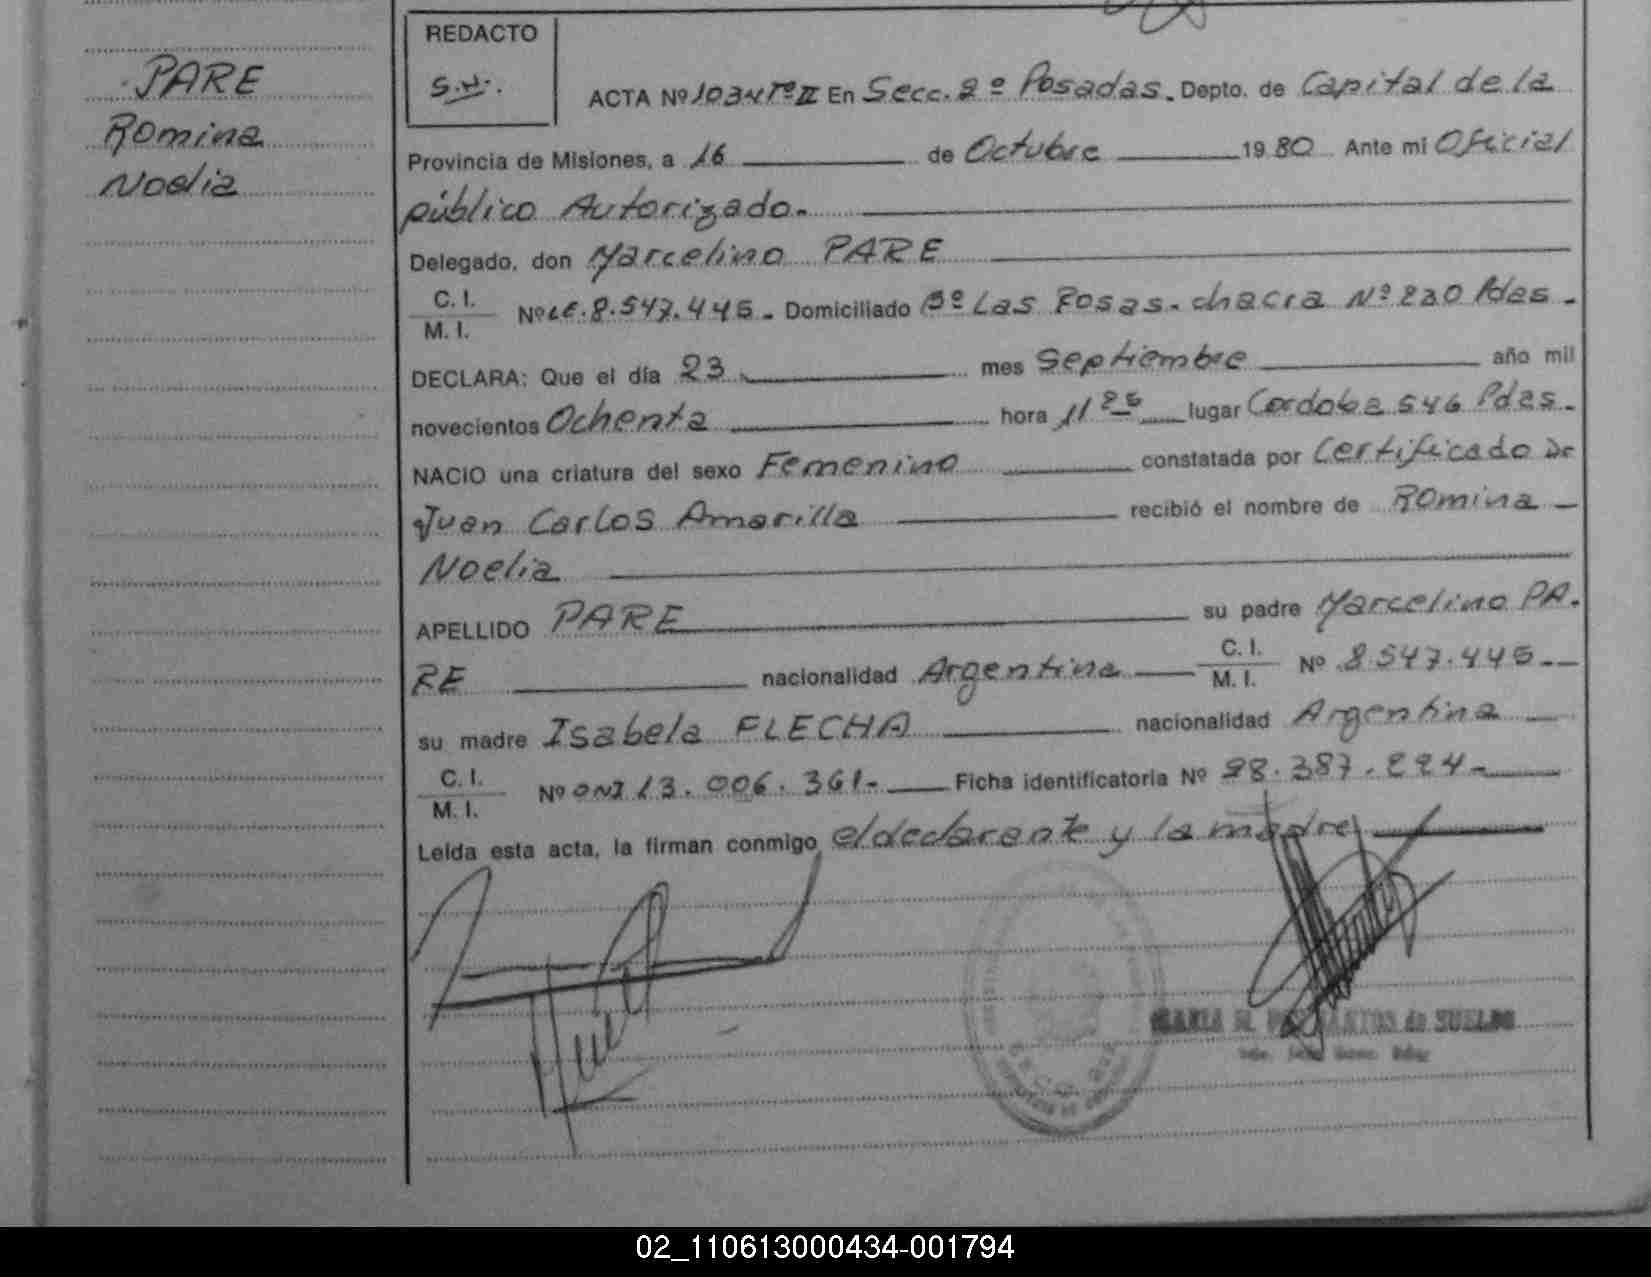 REDACTO
S.H.
PARE
Romina
Noelia
ACTA Nº 1034 Tº II En Secc. 2º Posadas. Depto. de Capital de la
Provincia de Misiones, a 16 de Octubre 1980 Ante mi Oficial
público Autorizado.
Delegado, don Marcelino PARE
C. I.
M. I.
Nº LE. 8.547.445. Domiciliado Bº Las Rosas. chacra Nº 230 Pdas.
DECLARA: Que el día 23 mes Septiembre año mil
novecientos Ochenta hora 11 25 lugar Cordoba 546 Pdas.
NACIO una criatura del sexo Femenino constatada por Certificado De
Juan Carlos Amarilla recibió el nombre de Romina
Noelia
APELLIDO PARE su padre Marcelino PA.
RE nacionalidad Argentina C. I.
M. I. Nº 8.547.445
su madre Isabela FLECHA nacionalidad Argentina
C. I.
M. I.
Nº DNI 13.006.361. Ficha identificatoria Nº 28.387.224
Leída esta acta, la firman conmigo el declarante y la madre
MARIA de SUELDO
02_110613000434-001794